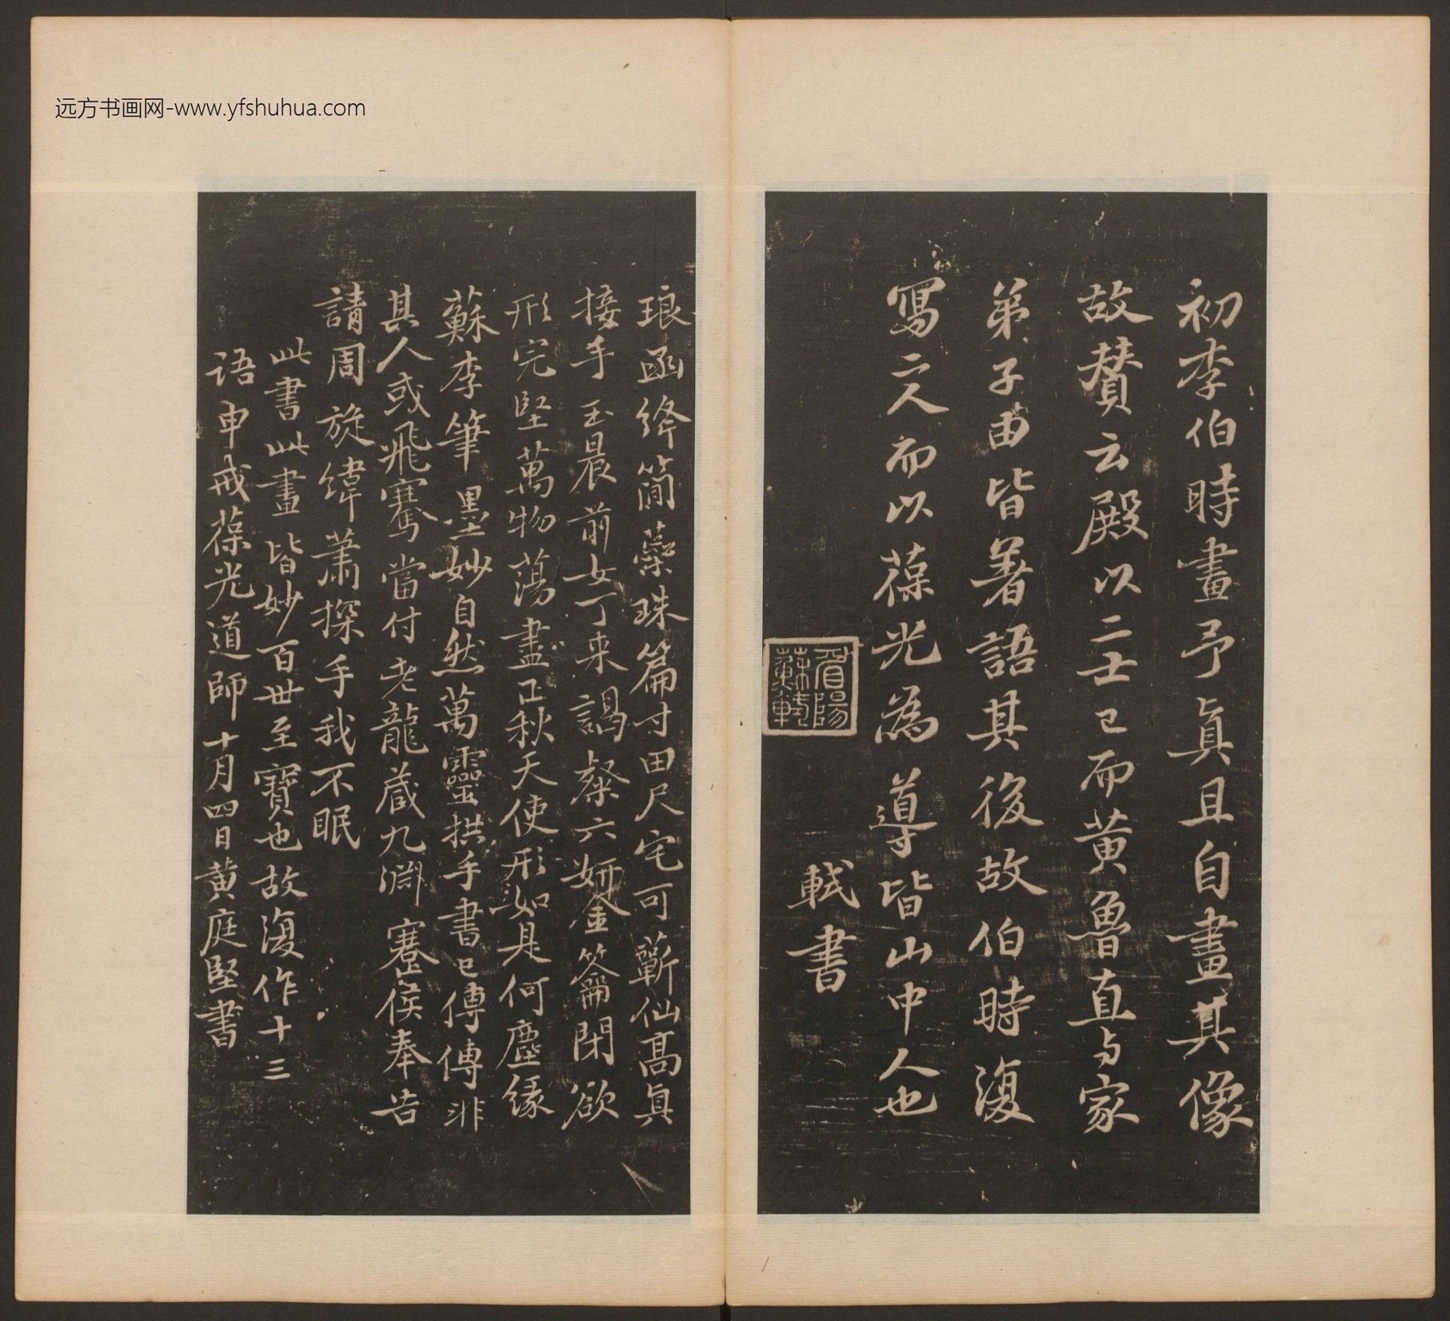 远方书画网-www.yfshuhua.com
初李伯時畫予真且自畫其像
故賛云殿以二士已而黄魯直与家
弟子由皆著語其後故伯時復
寫二人而以葆光為導皆山中人也
軾書
眉陽蘇軾
琅函絳簡蘂珠篇寸田尺宅可蘄仙高真
接手玉晨前女丁来謁粲六妍金籥閉欲
形完堅萬物蕩盡正秋天使形如是何塵緣
蘇李筆墨妙自然萬靈拱手書已傳傳非
其人或飛騫當付老龍蔵九淵蹇侯奉告
請周旋緯蕭探手我不眠
此書此畫皆妙百世至寶也故復作十三
語申戒葆光道師十月四日黄庭堅書